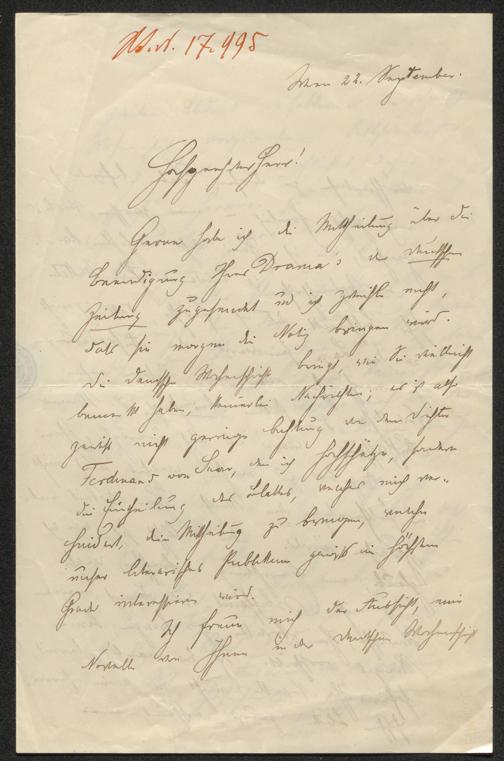 N.N. 17.995
Wien 22. September.
Hochgeehrter Herr!
Gerne habe ich die Mittheilung über die
Beendigung Ihres Drama's der deutschen
Zeitung zugesendet und ich zweifle nicht,
daß sie morgen die Notiz bringen wird.
Die deutsche Wochenschrift bringt, wie Sie vielleicht
bemerkt haben, keinerlei Nachrichten; es ist also
gewiß nicht geringe Achtung vor dem Dichter
Ferdinand von Saar, den ich hochschätze, sondern
die Eintheilung des Blattes, welche mich ver-
hindert, die Mittheilung zu bringen, welche
unser literarisches Publikum gewiß im höchsten
Grade interessiren wird.
Ich freue mich der Aussicht, eine
Novelle von Ihnen in der deutschen Wochenschrift